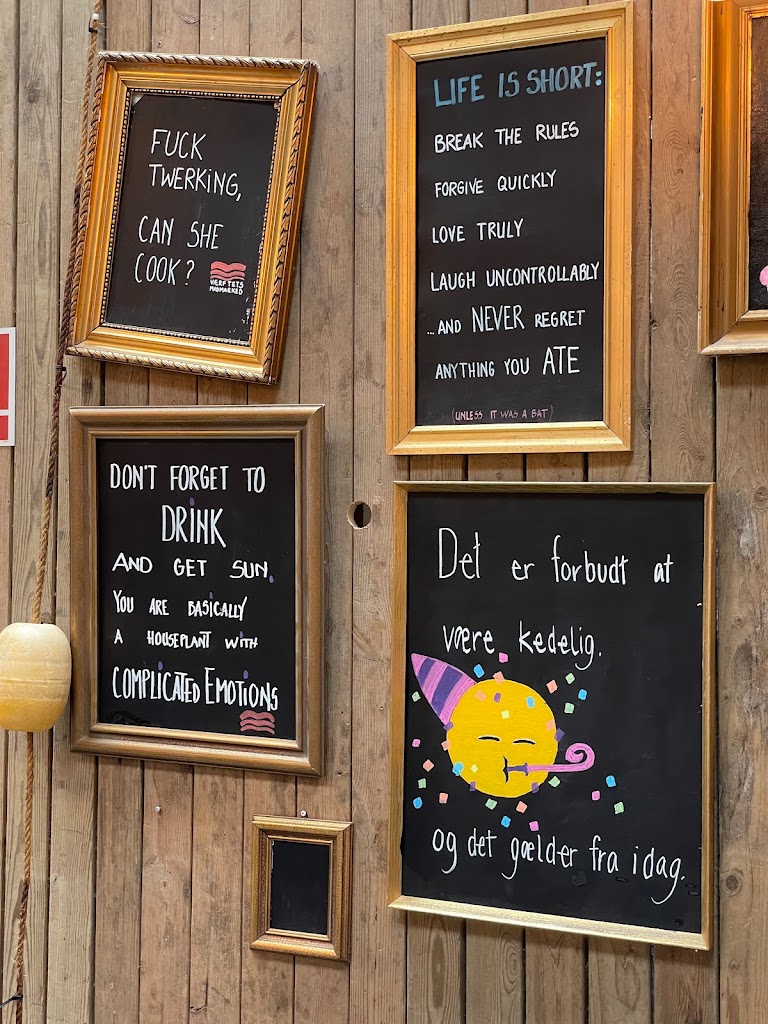 FUCK
TWERKING,
CAN SHE
COOK?
VÆRFTETS
MADMARKED
LIFE IS SHORT:
BREAK THE RULES
FORGIVE QUICKLY
LOVE TRULY
LAUGH UNCONTROLLABLY
...AND NEVER REGRET
ANYTHING YOU ATE
(UNLESS IT WAS A BAT)
DON'T FORGET TO
DRINK
AND GET SUN.
YOU ARE BASICALLY
A HOUSEPLANT WITH
COMPLICATED EMOTIONS
Det er forbudt at
være kedelig.
og det gælder fra idag.